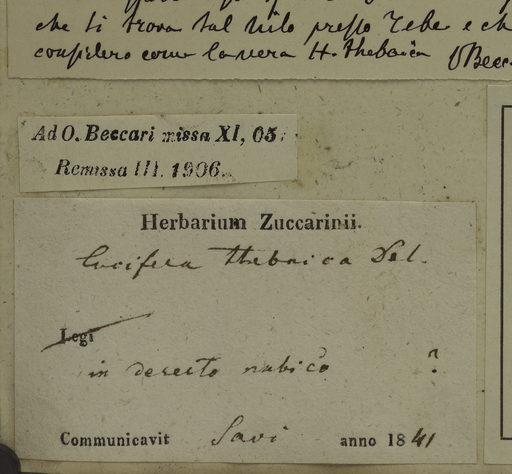 che si trova sul Nilo presso Tebe e ch
considero come la vera H. thebaica O Becc.
Ad O. Beccari missa XI, 05.
Remissa III. 1906.
Herbarium Zuccarinii.
Cucifera thebaica Del.
Legi
in deserto nubico ?
Communicavit Savi anno 1841